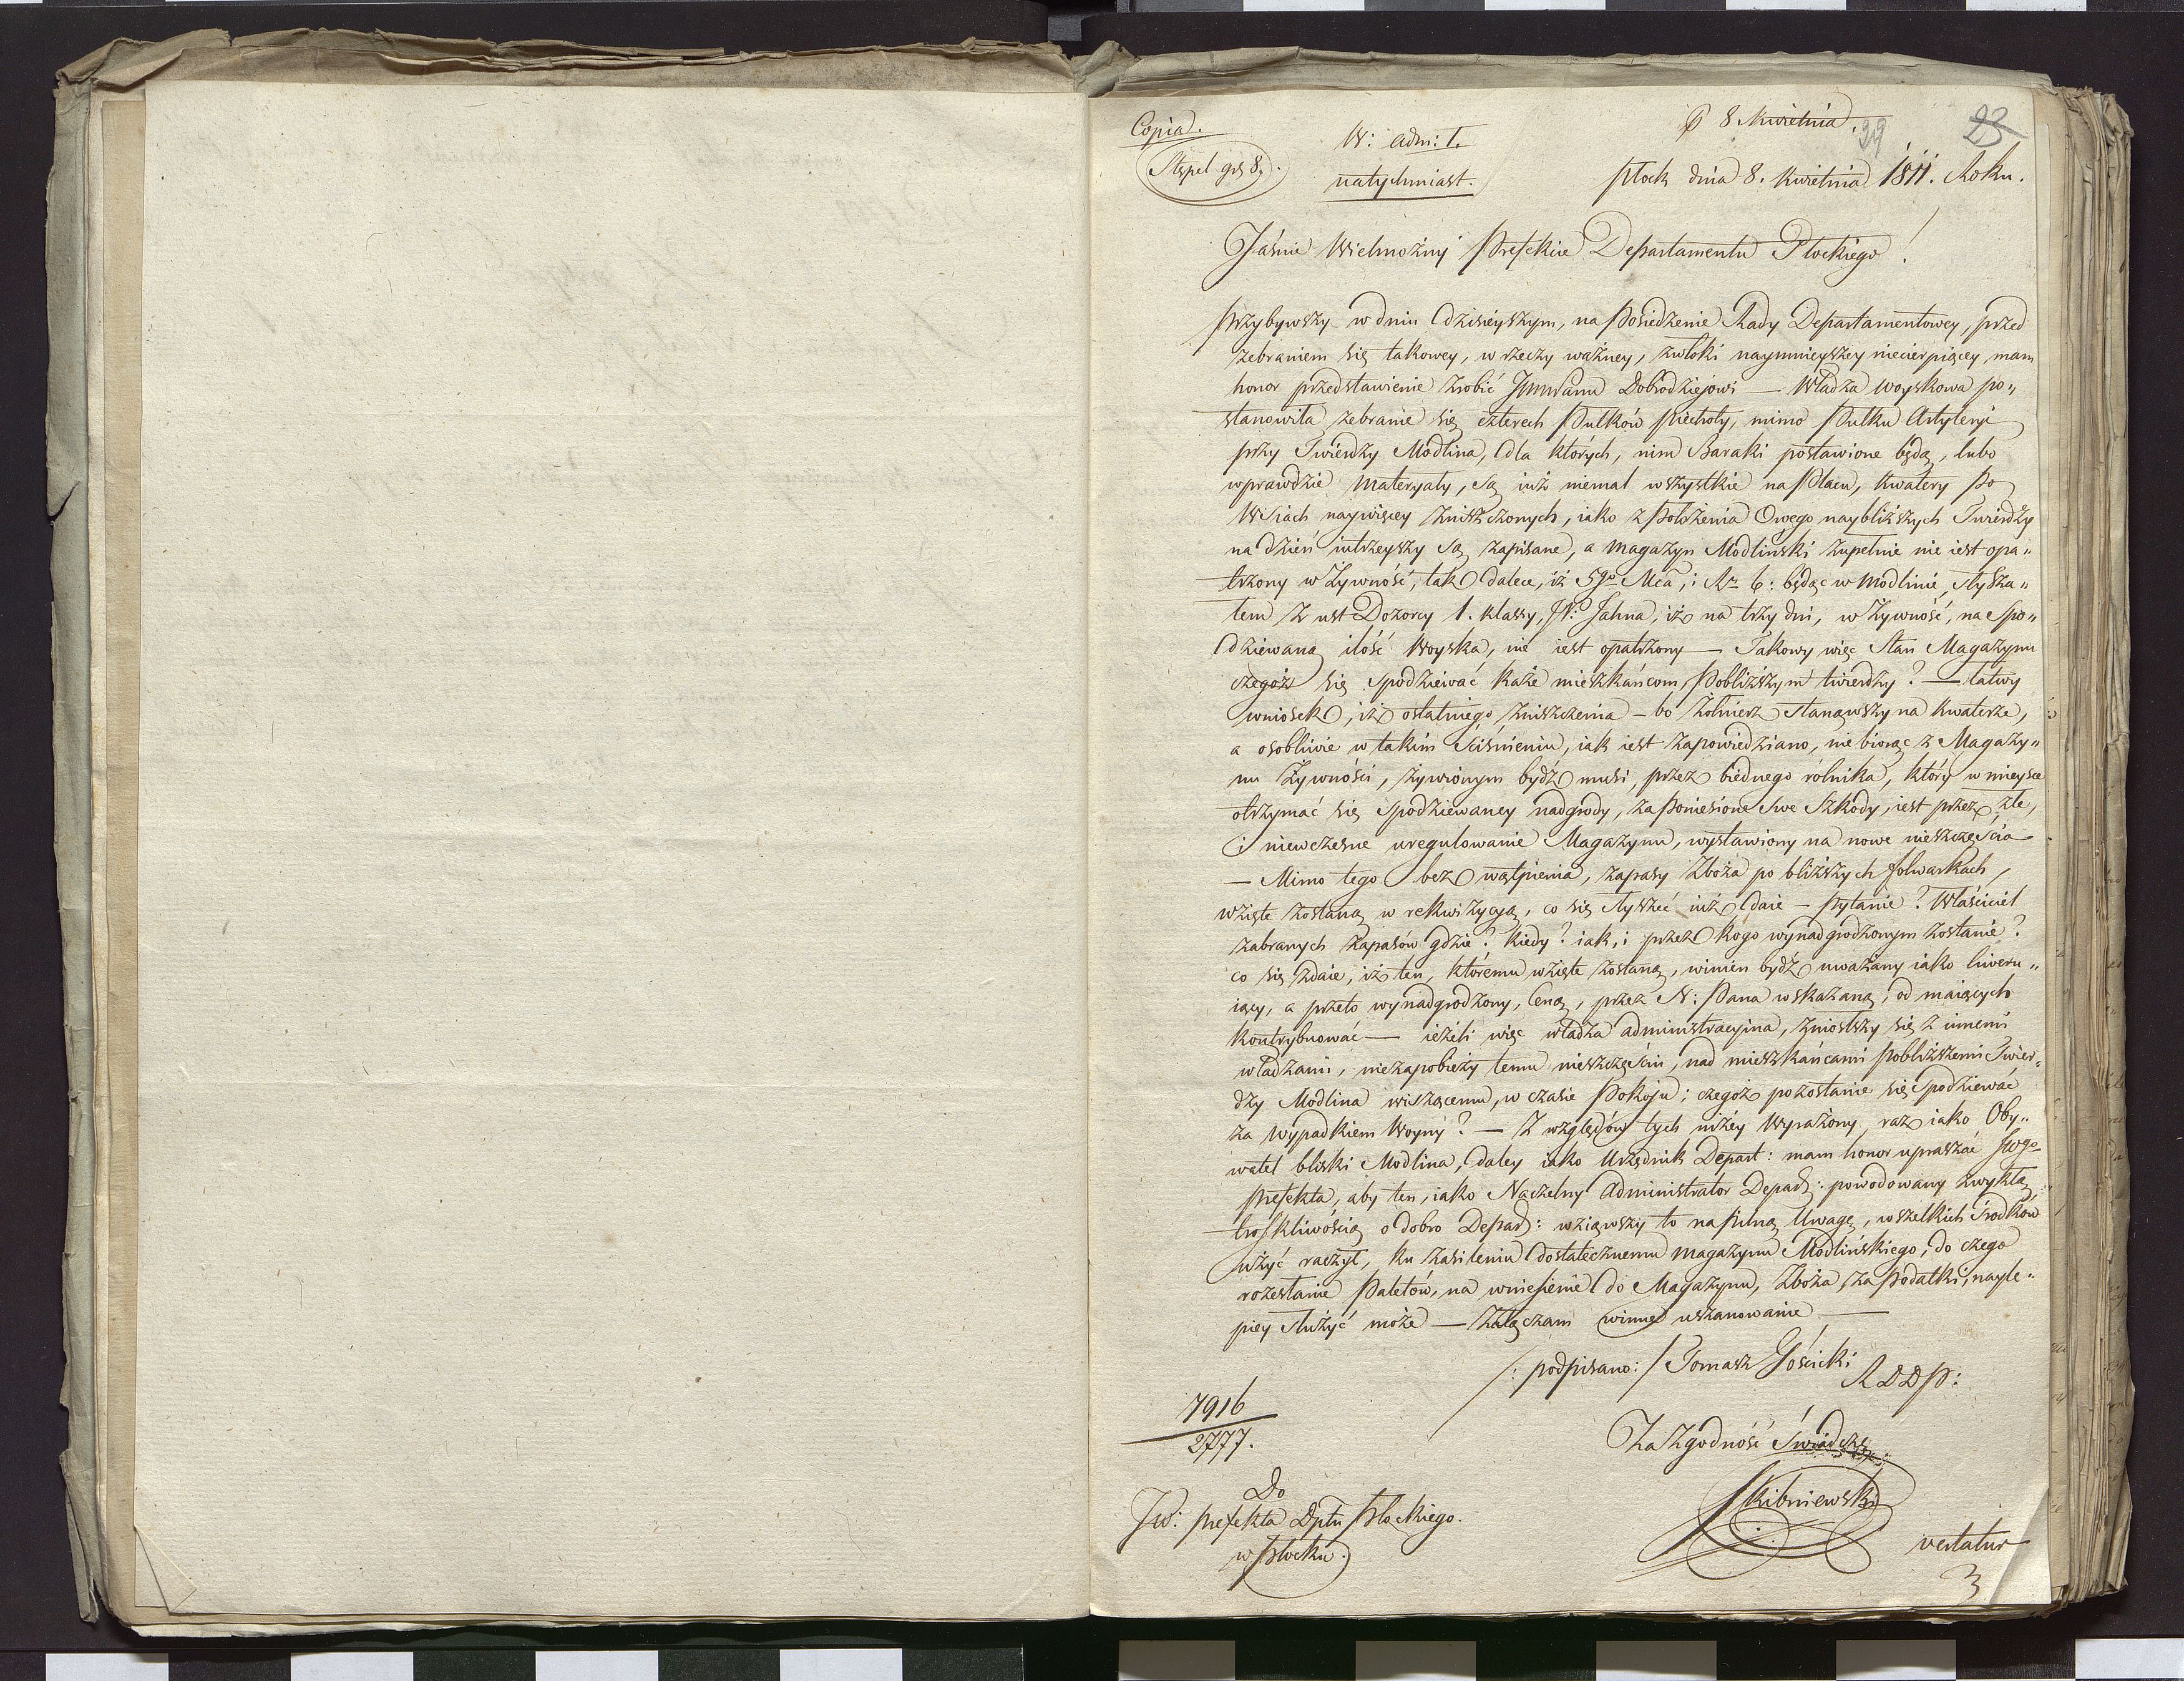 Copia.
W: adm: I.
8. Kwietnia.
29
23
Stępel gr 8.
natychmiast.
Płock dnia 8. Kwietnia 1811. Roku.
Jaśnie Wielmożny Prefekcie Departamentu Płockiego!
Przybywszy w dniu dzisieyszym, na Posiedzenie Rady Departamentowey, przed
zebraniem się takowey, w rzeczy ważney, zwłoki naymnieyszey niecierpiącey, mam
honor przedstawienie zrobić JWmPanu Dobrodziejowi — Władza woyskowa po„
stanowiła zebranie się czterech Pułków piechoty, mimo Pułku Artyleryi
przy Twierdzy Modlina, dla których, nim Baraki postawione będą, lubo
wprawdzie Materyały, są iuż niemal wszystkie na Placu, kwatery Po
Wsiach naywięcey zniszczonych, iako z Położenia Owego naybliższych Twierdzy
na dzień iutrzeyszy są zapisane, a magazyn Modliński zupełnie nie iest opa„
trzony w Żywność, tak dalece, iż 5go Mca, i Rr b: będąc w Modlinie, słysza„
łem z ust Dozorcy 1. klassy, JP: Jahna, iż na trzy dni, w Żywność, na spo„
dziewaną ilość Woyska, nie iest opatrzony — Takowy więc Stan Magazynu
czegoż się spodziewać każe mieszkańcom, Pobliższym twierdzy? — łatwy
wniosek, iż ostatniego zniszczenia — bo żołnierz stanąwszy na kwaterze,
a osobliwie w takim ściśnieniu, iak iest zapowiedziano, nie biorąc z Magazy„
nu Żywności, żywionym bydź musi, przez biednego rolnika, który w mieysce
otrzymać się spodziewaney nadgrody, za Poniesione swe szkody, iest przez złe,
i niewczesne uregulowanie Magazynu, wystawiony na nowe nieszczęścia
— Mimo tego bez wątpienia, zapasy Zboża po bliższych folwarkach,
wzięte zostaną w rekwizycyą, co się słyszeć iuż daie — pytanie? Właściciel
zabranych zapasów gdzie? kiedy? iak, i przez kogo wynadgrodzonym zostanie?
co się zdaie, iż ten, któremu wzięte zostaną, winien bydź uważany iako liweru„
iący, a przeto wynadgrodzony, Ceną, przez N: Pana wskazaną, od maiących
kontrybuować — ieżeli więc władza administracyina, zniosłszy się z innemi
władzami, niezapobieży temu nieszczęściu, nad mieszkańcami pobliższemi Twier„
dzy Modlina wiszącemu, w czasie Pokoju; czegoż pozostanie się spodziewać
za wypadkiem Woyny? — Z względów tych niżey Wyrażony, raz iako Oby„
watel bliski Modlina, daley iako Urzędnik Depart: mam honor upraszać JWgo
Prefekta, aby ten, iako Naczelny Administrator Depart: powodowany zwykłą
troskliwością o dobro Depart: wziąwszy to na pilną Uwagę, wszelkich środków
użyć raczył, ku zasileniu dostatecznemu magazynu Modlińskiego, do czego
rozesłanie Paletów, na wniesienie do Magazynu, Zboża, za Podatki, nayle„
piey służyć może — Załączam winne uszanowanie —
/: podpisano: / Tomasz Gościcki
RDDP:
7916
2777.
Za Zgodność świadczę
Skibniewski
Do
JW: Prefekta Dptu Płockiego.
w Płocku.
vertatur
3